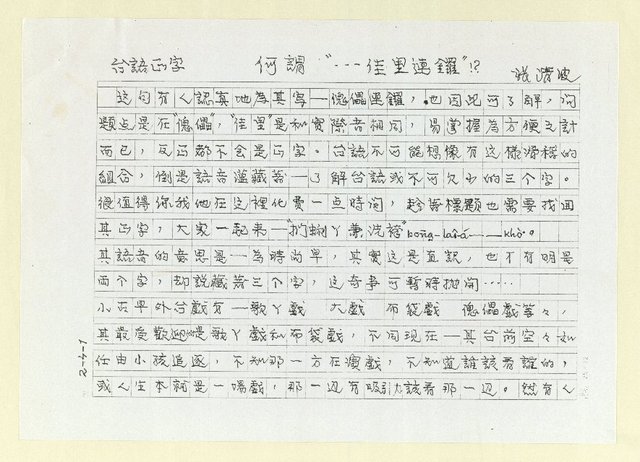 台語正字 何謂“…佳里連鑼”!? 張清波
這句有人認真地為其寫一傀儡連鑼，也因此可了解，問
題点是在“傀儡”，“佳里”是和實際音相同，易掌握為方便之計
而已，反正都不会是正字。台語不可能想像有这様滑稽的
組合，倒是語音溫藏著一了解台語或不可欠少的三个字。
很值得你我他在这裡化費一点時間，趁著標題也需要找回
其正字，大家一起来—“ 蜊丫兼洗褲” ——khò。
其語音的意思是一為時尚早，其實这是直記，也不有明是
兩个字，却說藏著三个字，这奇事可暫時拋開……
小 早外台戲有一歌丫戲 大戲 布袋戲 傀儡戲等々，
其最受歡迎 是歌丫戲和布袋戲，不同現在一其台前空々如
任由小孩追逐，不知那一方在演戲，不知道誰該看誰的，
或人生本就是一場戲，那一边有吸引力該看那一边。然有人
2-4-1